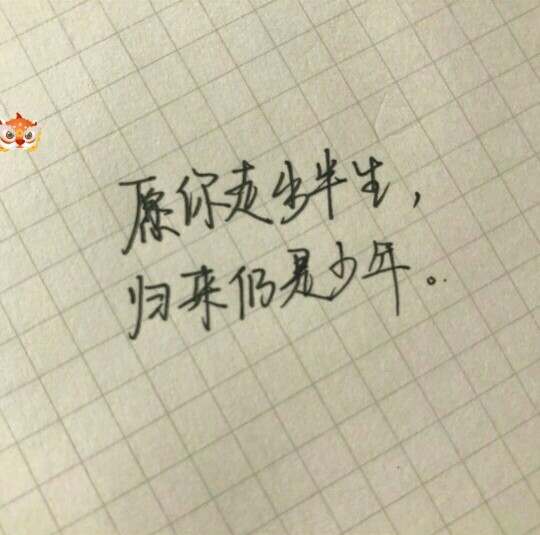 愿你走出半生，
归来仍是少年。